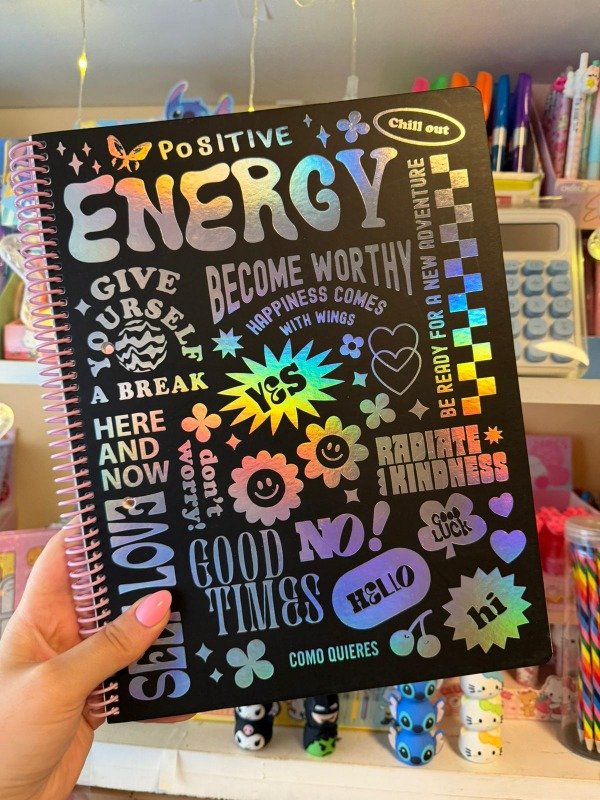 POSITIVE
ENERGY
Chill out
GIVE
YOURSELF
A BREAK
BECOME WORTHY
HAPPINESS COMES
WITH WINGS
BE READY FOR A NEW ADVENTURE
YES
HERE
AND
NOW
don't
worry!
RADIATE
KINDNESS
SELF LOVE
GOOD
TIMES
NO!
GOOD
LUCK
HELLO
hi
COMO QUIERES